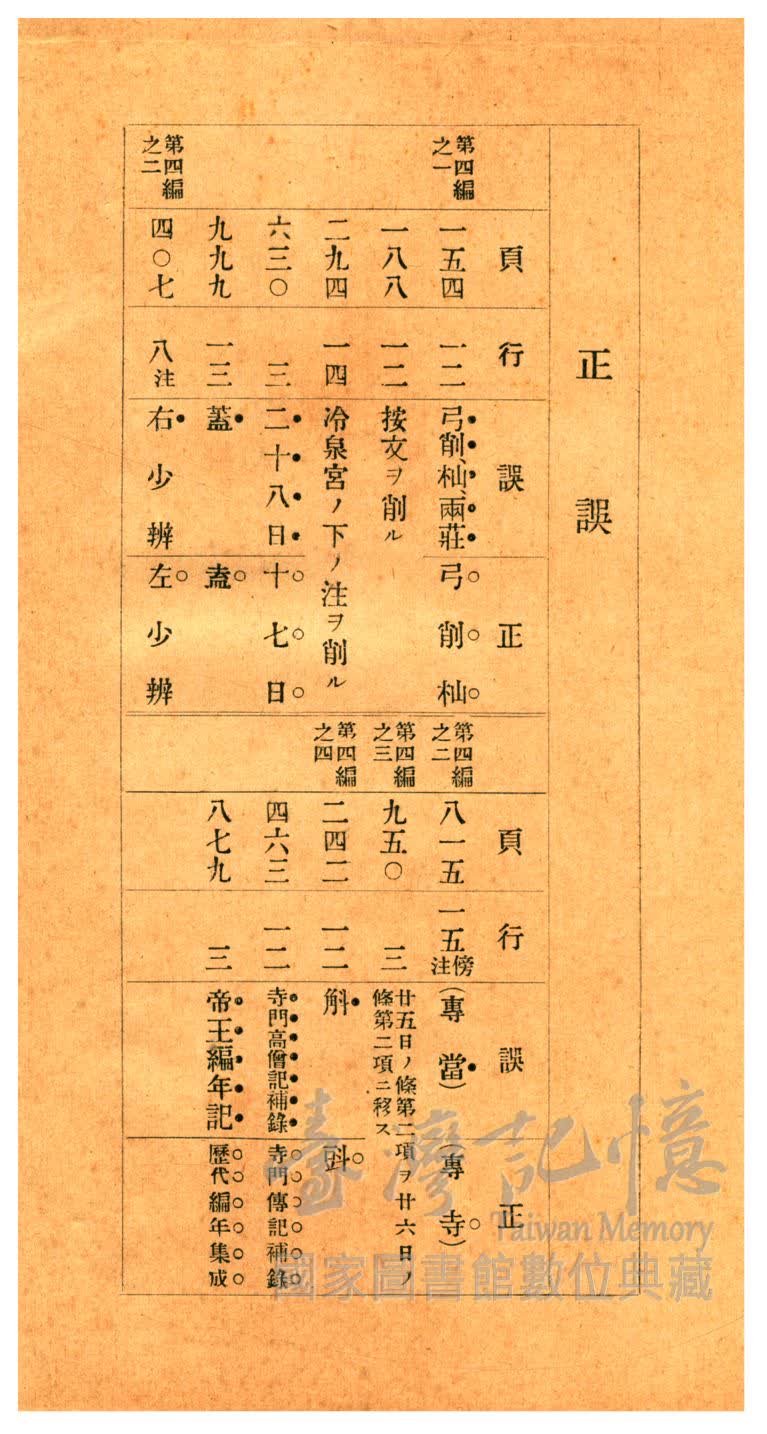 正誤
頁 行 誤 正
第四編之一 一五四 一二 弓削、杣、兩莊 弓削杣
一八八 一二 按文ヲ削ル
二九四 一四 冷泉宮ノ下ノ注ヲ削ル
六三〇 三 二十八日 十七日
九九九 一三 蓋
第四編之二 四〇七 八注 右少辨 左少辨
頁 行 誤 正
第四編之二 八一五 一五傍注 （專當） （專寺）
第四編之三 九五〇 三 廿五日ノ條第二項ヲ廿六日ノ條第二項ニ移ス
第四編之四 二四二 一二 斛
四六三 一二 寺門高僧記補錄 寺門傳記補錄
八七九 三 帝王編年記 歷代編年集成
臺灣記憶
Taiwan Memory
國家圖書館數位典藏